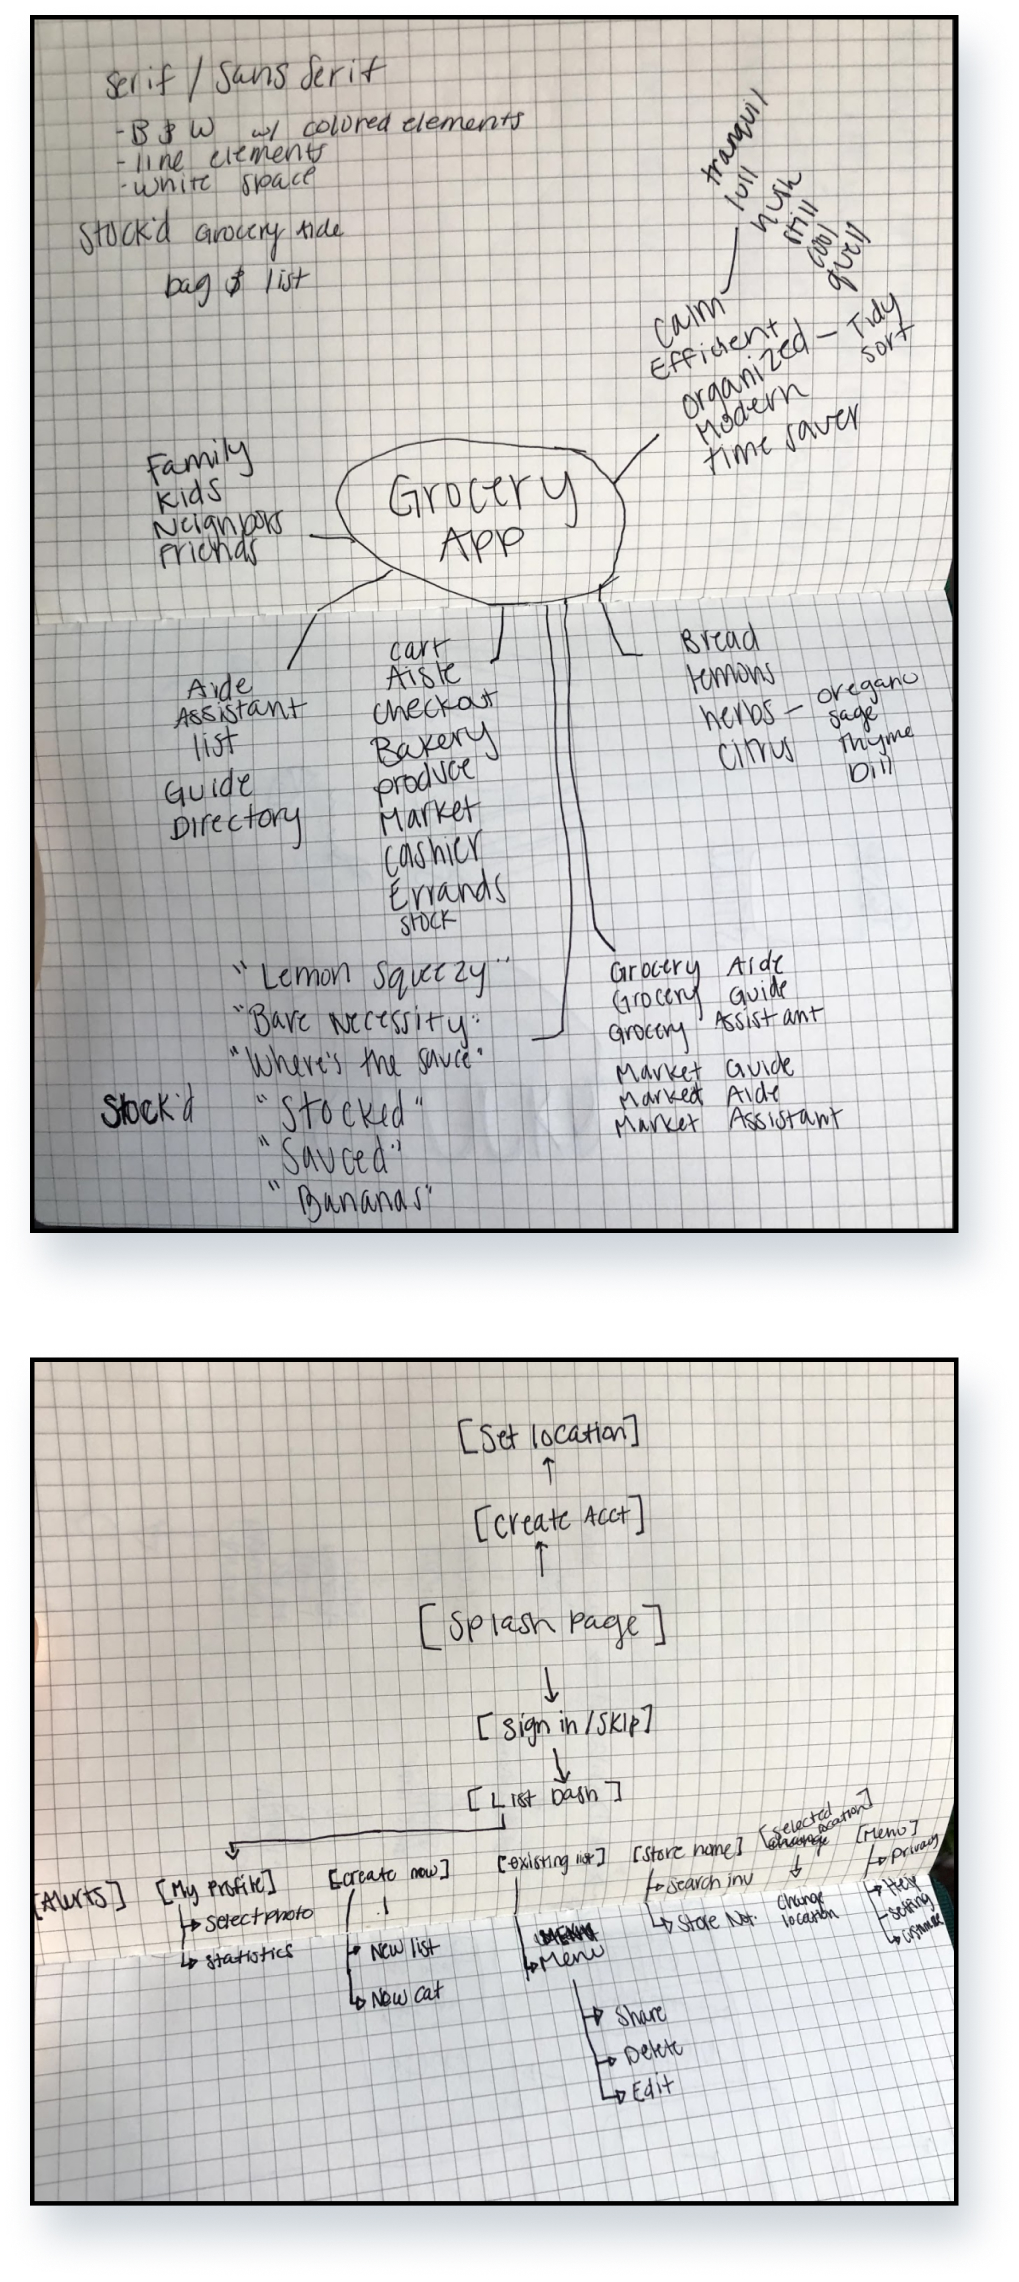 Serif / Sans Serif
- B & W w/ colored elements
- line elements
- white space
Stock'd Grocery
bag & list
tranquil
lull
hush
still
cool
quell
Calm
Efficient
organized - Tidy
sort
Modern
time saver
Family
Kids
Neighbors
Friends
Grocery
APP
Aide
Assistant
list
Guide
Directory
cart
Aisle
checkout
Bakery
produce
Market
cashier
Errands
stock
Bread
lemons
herbs - oregano
sage
Thyme
Dill
citrus
"Lemon Squeezy"
"Bare Necessity"
"Where's the sauce"
Stock'd "Stocked"
"Sauced"
"Bananas"
Grocery Aide
Grocery Guide
Grocery Assistant
Market Guide
Market Aide
Market Assistant
[Set location]
[Create Acct]
[Splash Page]
[Sign in / Skip]
[List Dash]
[Alerts]
[My Profile]
Select photo
Statistics
[Create new]
New list
New cat
[existing list]
Menu
Share
Delete
Edit
[Store name]
Search inv
Store Not.
[Selected location]
Change
location
[Menu]
Privacy
Help
Setting